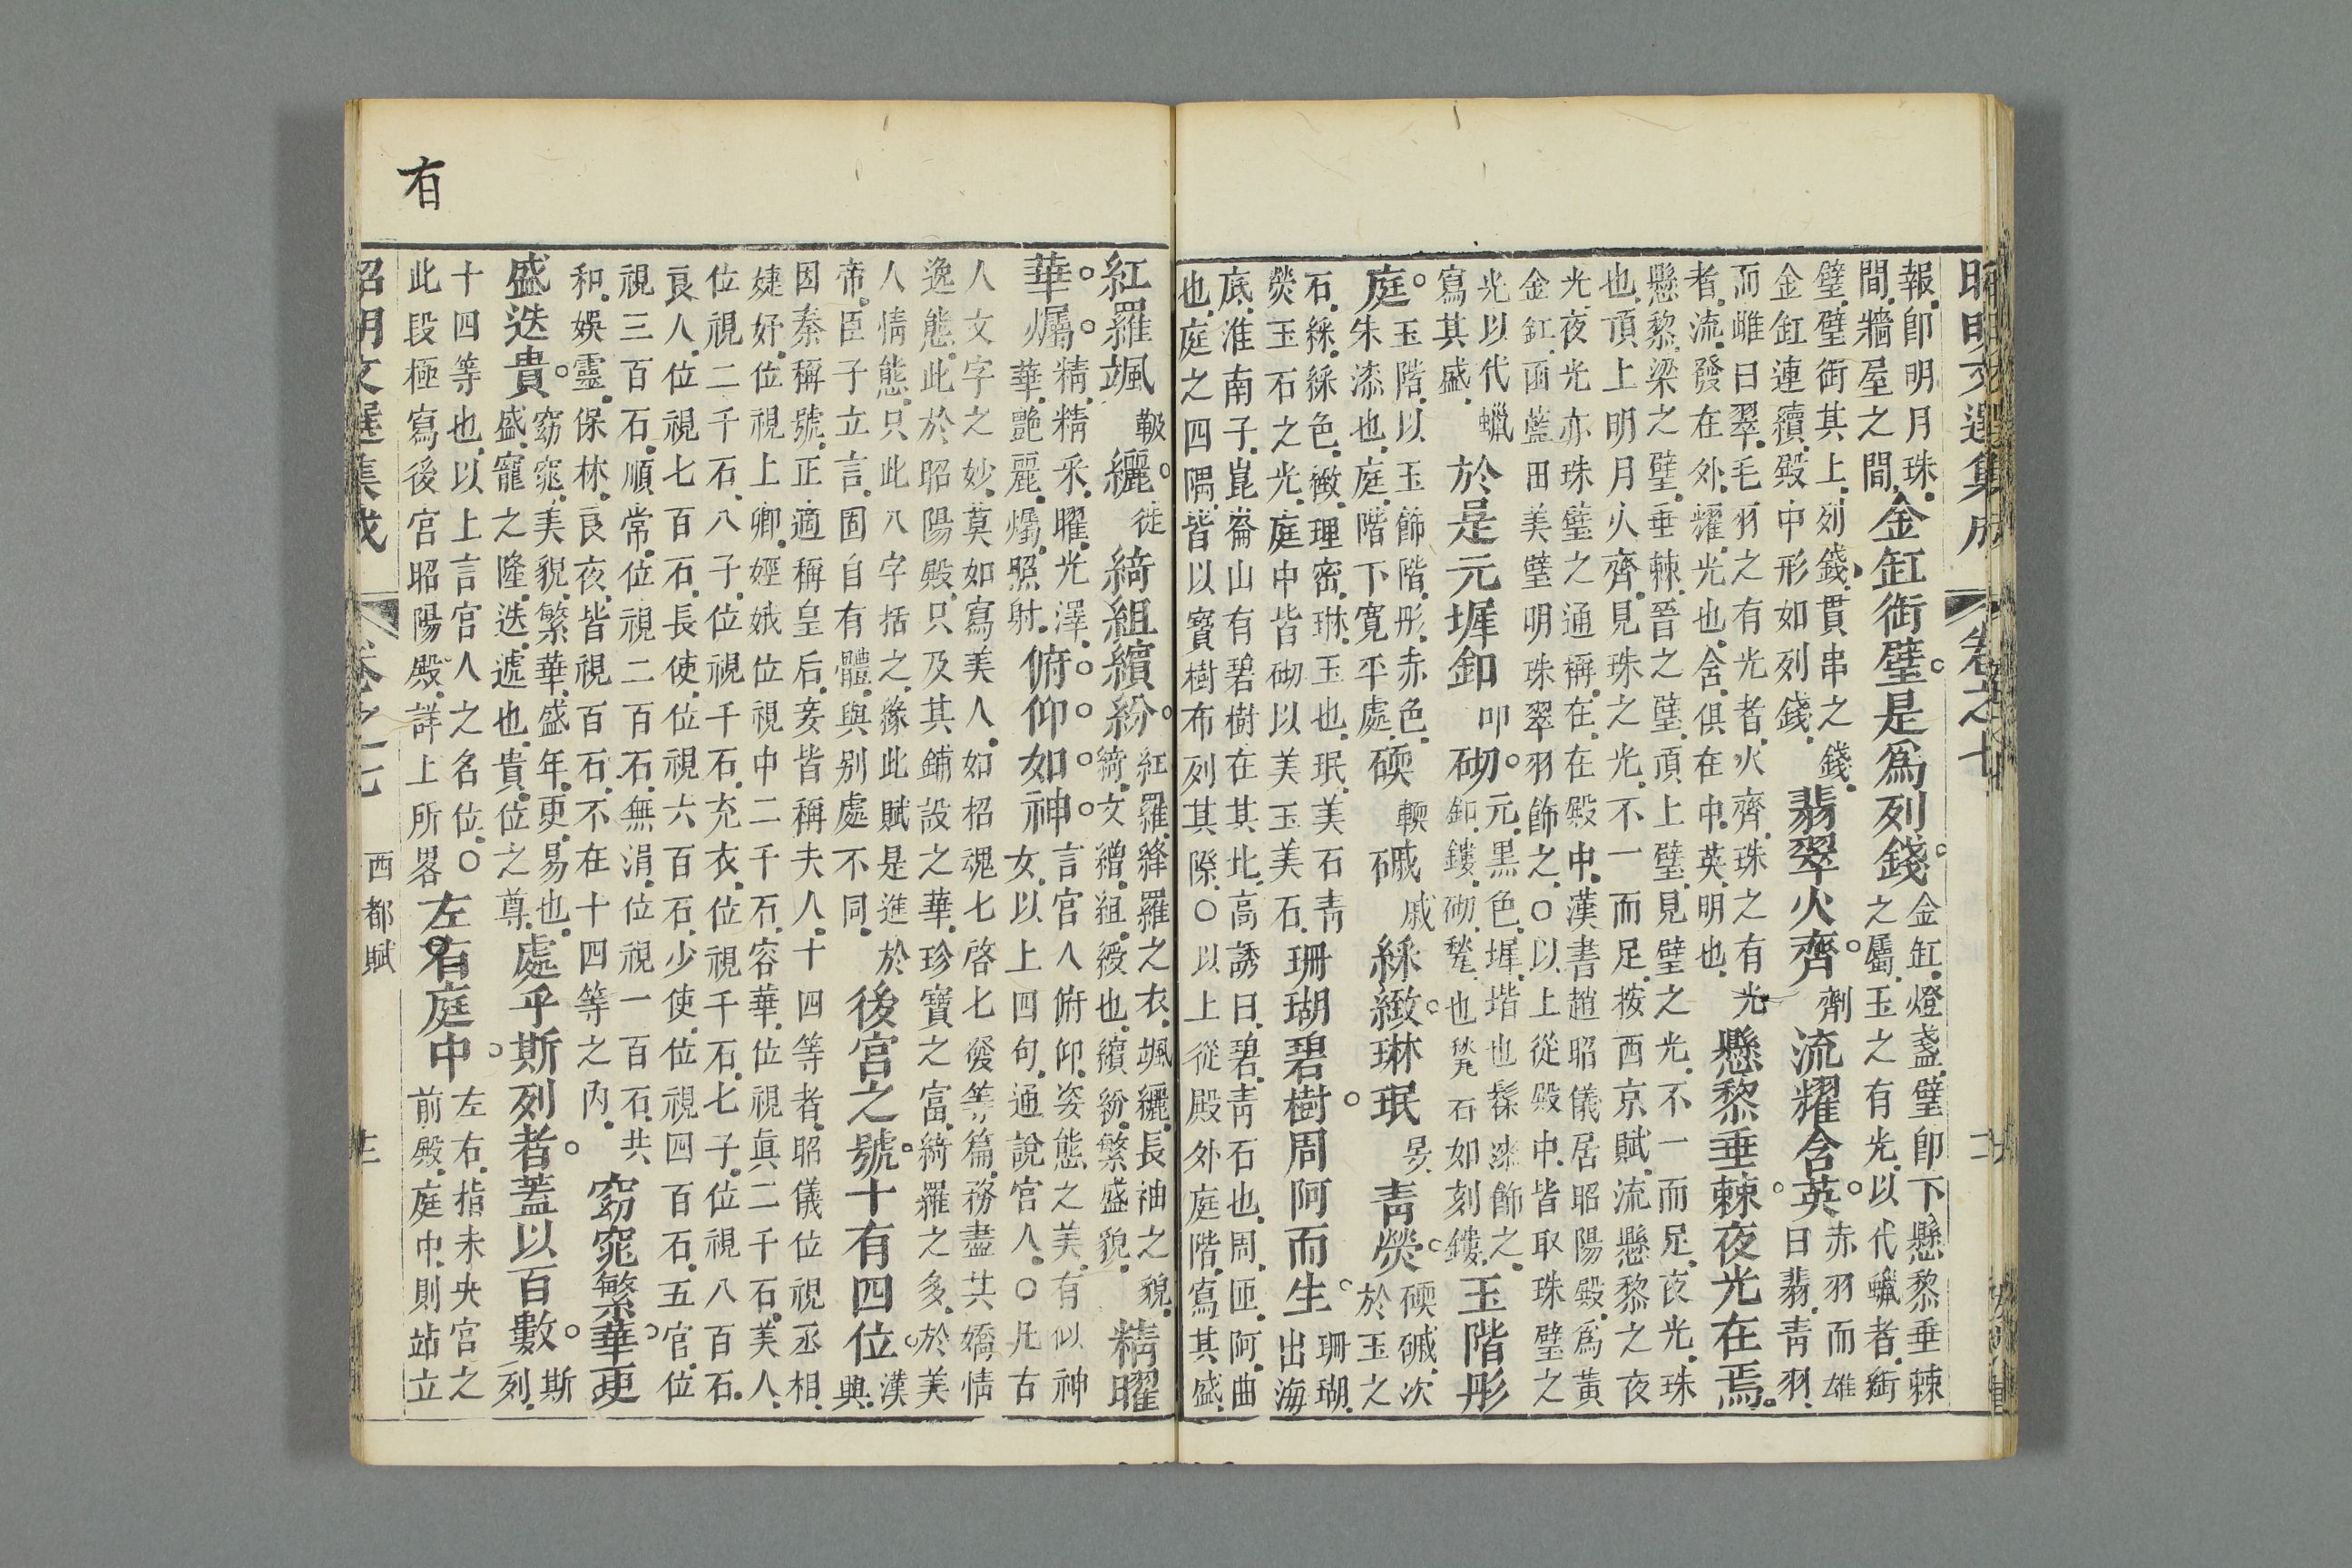 昭明文選集成 卷之七
報卽明月珠
間牆屋之間
金缸銜璧是爲列錢
金缸燈盞璧卽下懸黎垂棘
之屬玉之有光以代蠟者銜
璧璧銜其上列錢貫串之錢
金缸連續殿中形如列錢
翡翠火齊劑流耀含英
赤羽而雄
曰翡青羽
而雌曰翠毛羽之有光者火齊珠之有光
者流發在外耀光也含俱在中英明也
懸黎垂棘夜光在焉
懸黎梁之璧垂棘晉之璧頂上璧見璧之光不一而足夜光珠
也頂上明月火齊見珠之光不一而足按西京賦流懸黎之夜
光夜光亦珠璧之通稱在在殿中漢書趙昭儀居昭陽殿爲黃
金釭函藍田美璧明珠翠羽飾之○以上從殿中皆取珠璧之
光以代蠟
寫其盛
於是元墀釦叩砌
元黑色墀堦也髹漆飾之
釦鏤砌甃也甃石如刻鏤
玉階彤
庭
玉階以玉飾階彤赤色
朱漆也庭階下寬平處
碝輭磩戚綵緻琳珉旻青熒
碝磩次
於玉之
石綵綵色緻理密琳玉也珉美石青
熒玉石之光庭中皆砌以美玉美石
珊瑚碧樹周阿而生
珊瑚
出海
底淮南子崑崙山有碧樹在其北高誘曰碧青石也周匝阿曲
也庭之四隅皆以寶樹布列其際○以上從殿外庭階寫其盛
紅羅颯靸纚徙綺組繽紛
紅羅絳羅之衣颯纚長袖之貌
綺文繒組綬也繽紛繁盛貌
精曜
華燭
精精采曜光澤
華艶麗爥照射
俯仰如神
言宫人俯仰姿態之美有似神
女以上四句通說宫人○凡古
人文字之妙莫如寫美人如招魂七啓七發等篇務盡其嬌情
逸態此於昭陽殿只及其鋪設之華珍寶之富綺羅之多於美
人情態只此八字括之緣此賦是進於
帝臣子立言固自有體與别處不同
後宫之號十有四位
漢
興
因秦稱號正適稱皇后妾皆稱夫人十四等者昭儀位視丞相
婕妤位視上卿娙娥位視中二千石容華位視眞二千石美人
位視二千石八子位視千石充衣位視千石七子位視八百石
良人位視七百石長使位視六百石少使位視四百石五官位
視三百石順常位視二百石無涓位視一百石共
和娛靈保林良夜皆視百石不在十四等之內
窈窕繁華更
盛迭貴
窈窕美貌繁華盛年更易也
盛寵之隆迭遞也貴位之尊
處乎斯列者蓋以百數
斯
列
十四等也以上言官人之名位○
此段極寫後宫昭陽殿詳上所畧
左右庭中
左右指未央宫之
前殿庭中則站立
昭明文選集成 卷之七 西都賦 十三
有